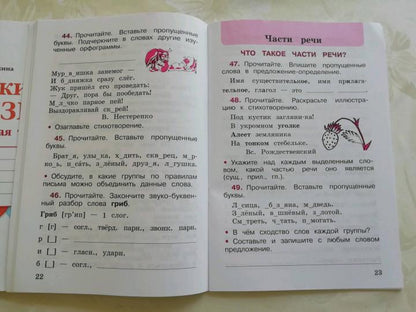 44. Прочитайте. Вставьте пропущенные
буквы. Подчеркните в словах другие изу-
ченные орфограммы.
Мур_в_ишка занемог —
И б_дняжка сразу слёг.
Жук пришёл его проведать:
— Друг, пора бы пообедать!
М_л_чко парное пей!
Выздоравливай ск_рей!
В. Нестеренко
• Озаглавьте стихотворение.
45. Прочитайте. Вставьте пропущенные
буквы.
• Обсудите, в какие группы по правилам
письма можно объединить данные слова.
46. Прочитайте. Закончите звуко-буквен-
ный разбор слова гриб.
Гриб [гр'ип] — 1 слог.
г [г] — согл., твёрд. парн., звонк. парн.
р [_] —
и [_] — гласн., ударн.
б [_] — согл.,
22
Части речи
ЧТО ТАКОЕ ЧАСТИ РЕЧИ?
47. Прочитайте. Впишите пропущенные
слова в предложение-определение.
Имя существительное, имя прилага-
тельное, глагол — это
48. Прочитайте. Раскрасьте иллюстра-
цию к стихотворению.
Под кустик загляни-ка!
В укромном уголке
Алеет земляника
На тонком стебельке.
Вс. Рождественский
• Укажите над каждым выделенным сло-
вом, какой частью речи оно является
(сущ., прил., гл.).
49. Прочитайте. Вставьте пропущенные
буквы.
Л_сица, _б_з_яна, м_дведь.
З_лёный, в_шнёвый, з_лотой.
См_треть, ч_тать, п_могать.
• В чём сходство слов каждой группы?
• Составьте и запишите с любым словом
предложение.
23